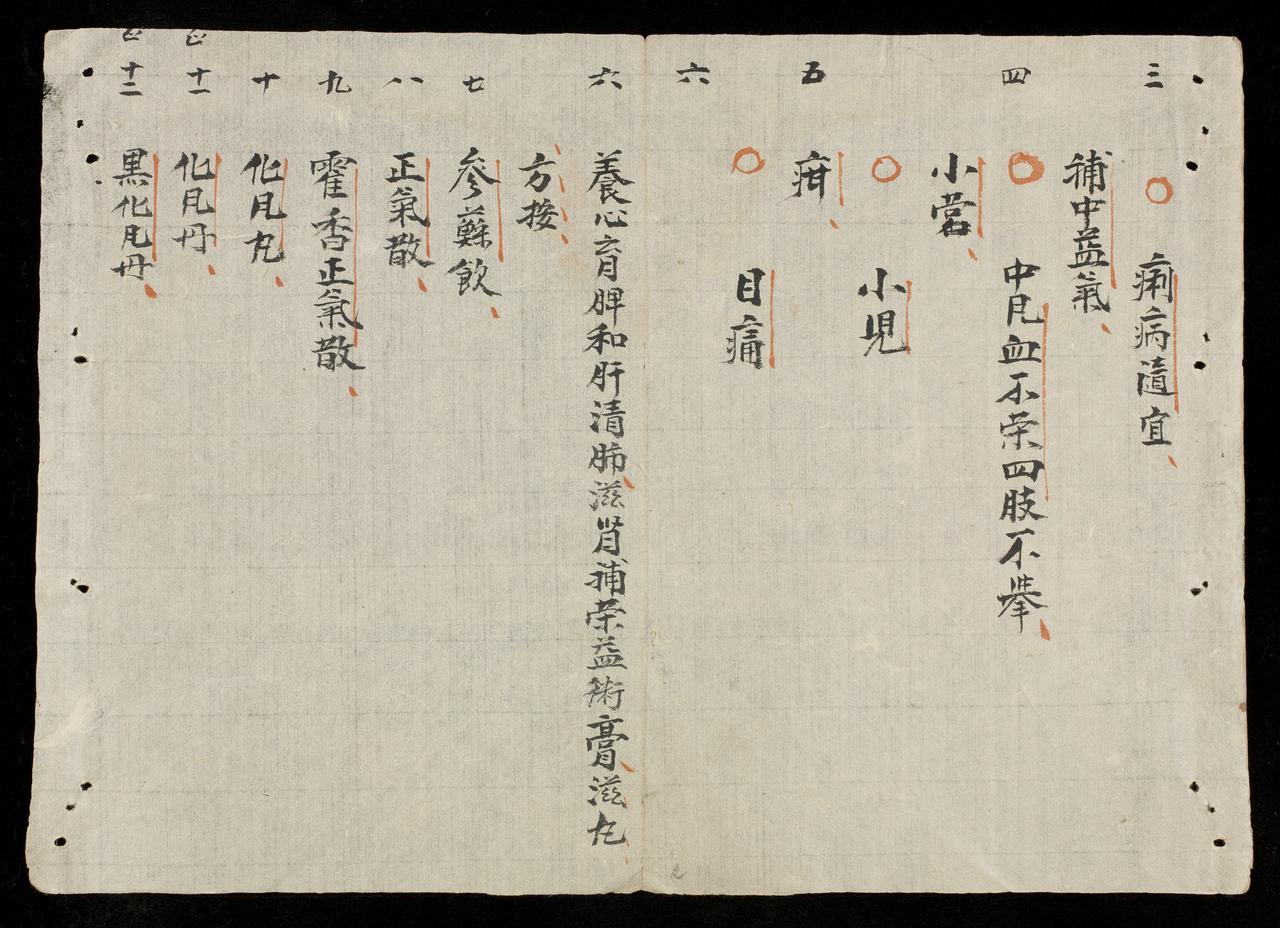 三
痢病隨宜
補中益氣
四
中凨血不荣四肢不举
小营
小児
五
疳
目痛
六
六
養心育脾和肝清肺滋肾補荣益衛膏滋丸
方按
七
參蘇飲
八
正氣散
九
霍香正氣散
十
化凨丸
十一
化凨丹
十二
黒化凨丹